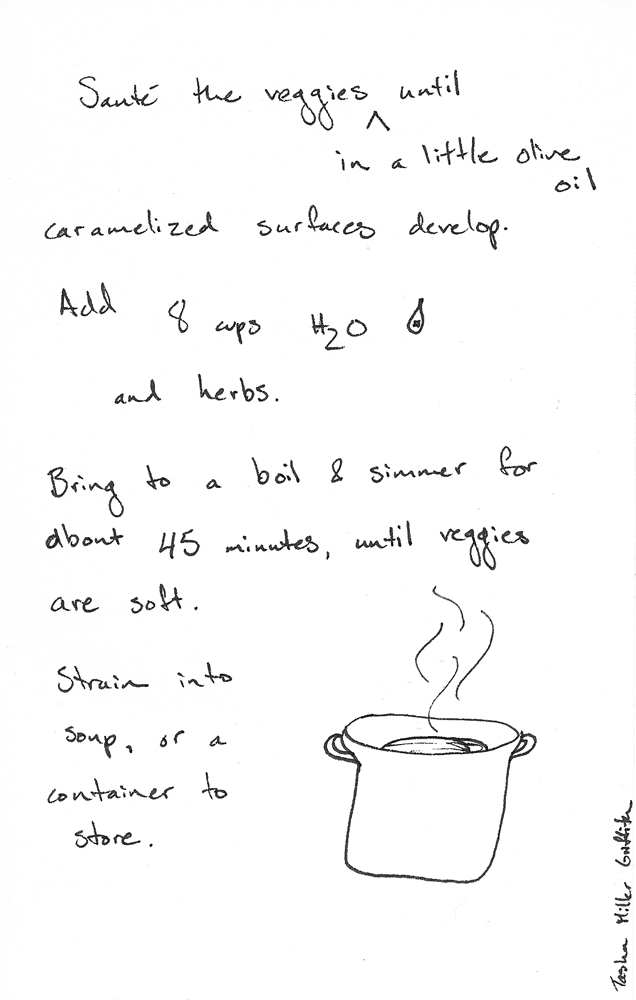 Sauté the veggies ^ until
in a little olive
oil
caramelized surfaces develop.
Add 8 cups H2O
and herbs.
Bring to a boil & simmer for
about 45 minutes, until veggies
are soft.
Strain into
soup, or a
container to
store.
Tasha Miller Griffith